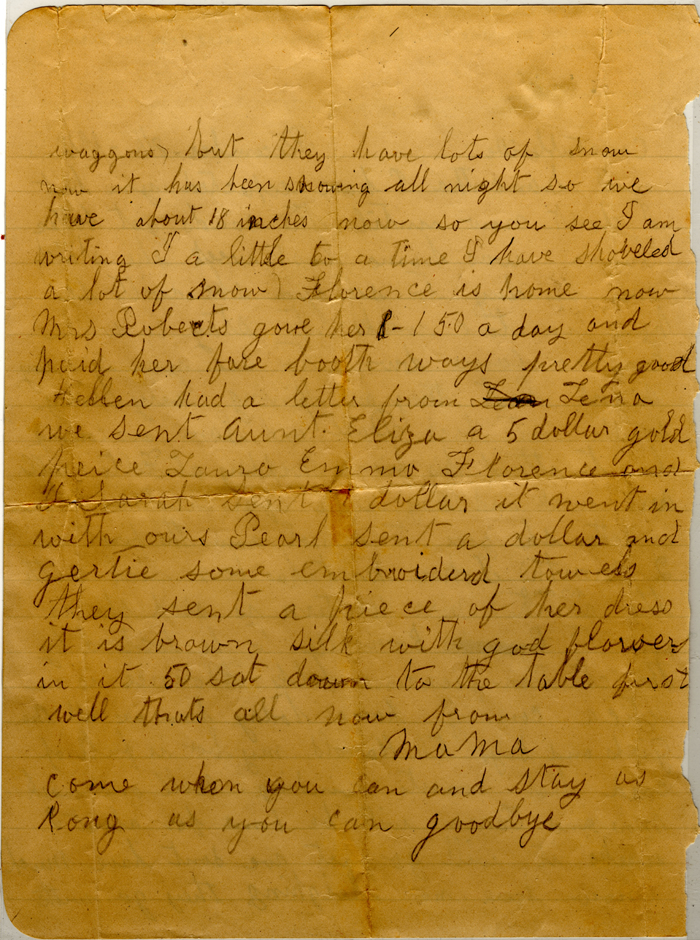 waggons) but they have lots of snow
now it has been snowing all night so we
have about 18 inches now so you see I am
writing I a little to a time I have shoveled
a lot of snow) Florence is home now
Mrs Roberts gave her 1-150 a day and
paid her fare booth ways pretty good
Hellen had a letter from Lena
we sent Aunt. Eliza a 5 dollar gold
peice Laura Emma Florence and
Sarah sent 1 dollar it went in
with ours Pearl sent a dollar and
gertie some embroiderd towels
they sent a piece of her dress
it is brown silk with god flower
in it 50 sat down to the table first
well thats all now from
MaMa
come when you can and stay as
long as you can goodbye